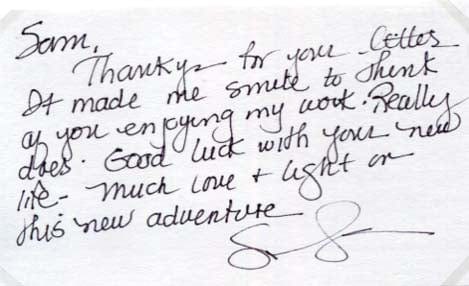 Sam,
Thanks for your letter
It made me smile to think
of you enjoying my work. Really
does. Good luck with your new
life - Much love + light on
this new adventure